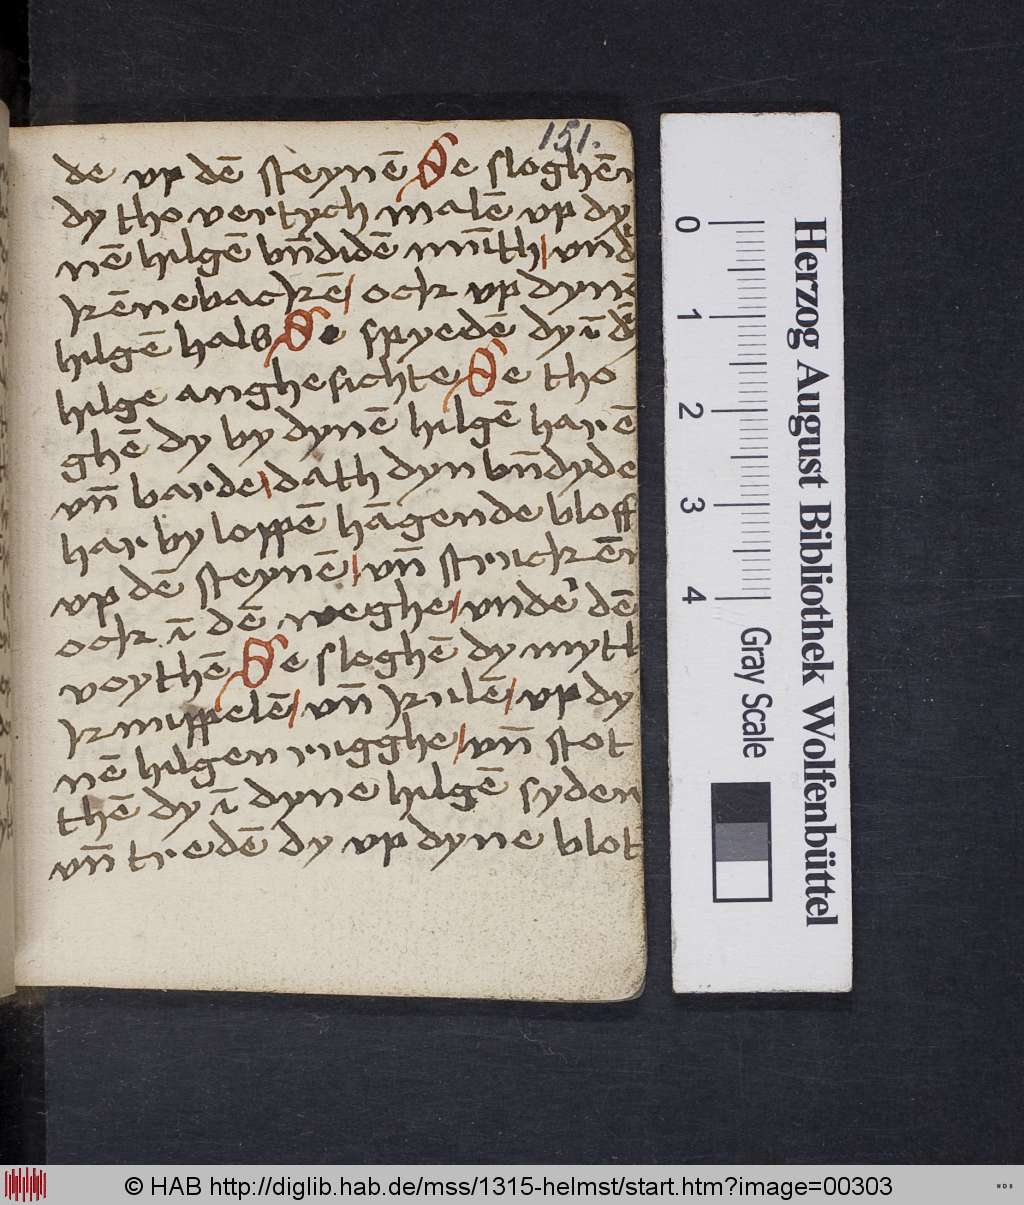 151.
de vp dē steynē Se sloghēn
dy tho vertych malē vp dy
nē hilgē vn̄didē mn̄ith vnd
kēnebackē ock vp dynē
hilgē hals Se spyedē dy ī dē
hilge anghesichte Se tho
ghē dy by dynē hilgē harē
vn̄ barde dath dyn vn̄dyde
har by loppē hāgende bloff
vp dē steynē vn̄ struckēn
ock ī dē weghe vnder dē
voythē Se sloghē dy myth
knuppelē vn̄ kulē vp dy
nē hilgen rugghe vn̄ stot
thē dy ī dyne hilgē syden
vn̄ tredē dy vp dyne blot
Herzog August Bibliothek Wolfenbüttel
0 1 2 3 4
Gray Scale
© HAB http://diglib.hab.de/mss/1315-helmst/start.htm?image=00303